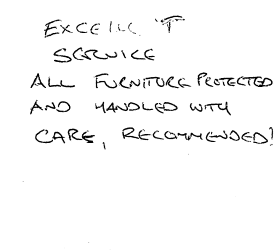 EXCELLENT
SERVICE
ALL FURNITURE PROTECTED
AND HANDLED WITH
CARE, RECOMMENDED!